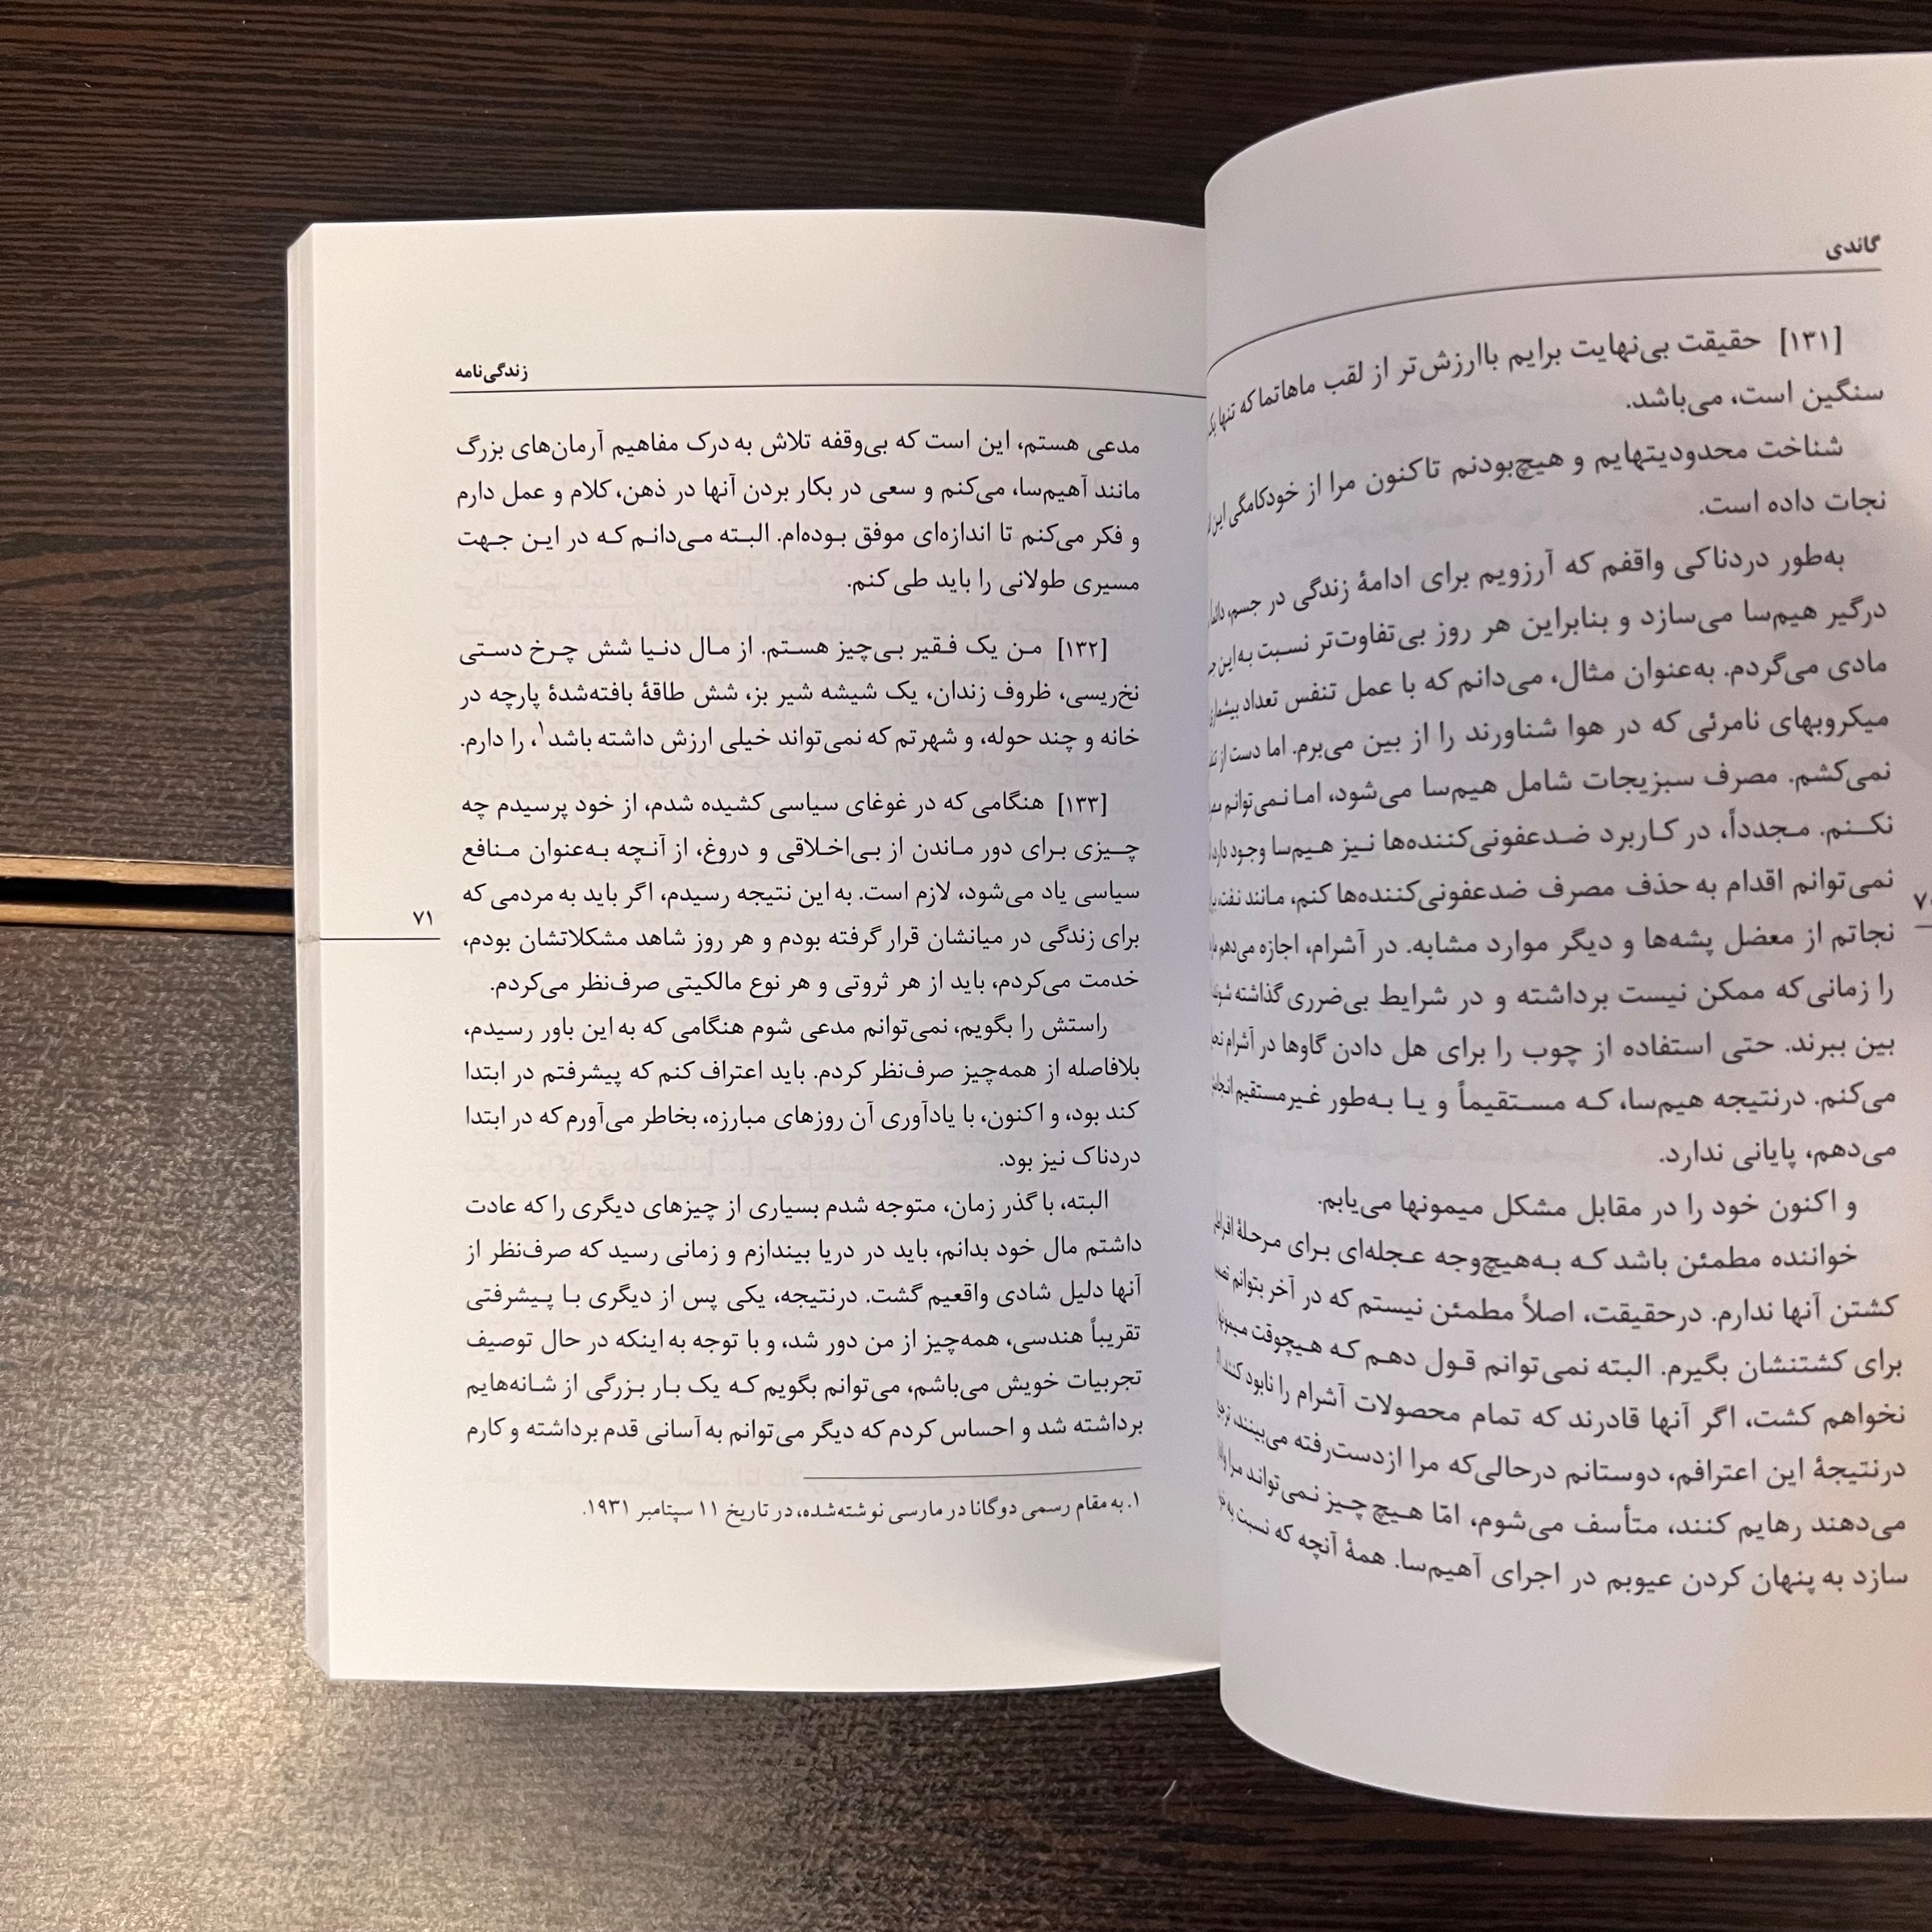 گاندی
[۱۳۱] حقیقت بی‌نهایت برایم باارزش‌تر از لقب ماهاتما که تنها یک
سنگین است، می‌باشد.
شناخت محدودیتهایم و هیچ‌بودنم تاکنون مرا از خودکامگی این
نجات داده است.
به‌طور دردناکی واقفم که آرزویم برای ادامهٔ زندگی در جسم،
درگیر هیم‌سا می‌سازد و بنابراین هر روز بی‌تفاوت‌تر نسبت به این
مادی می‌گردم. به‌عنوان مثال، می‌دانم که با عمل تنفس تعداد بیشماری
میکروبهای نامرئی که در هوا شناورند را از بین می‌برم. اما دست از
نمی‌کشم. مصرف سبزیجات شامل هیم‌سا می‌شود، اما نمی‌توانم
نکنم. مجدداً، در کاربرد ضدعفونی‌کننده‌ها نیز هیم‌سا وجود دارد،
نمی‌توانم اقدام به حذف مصرف ضدعفونی‌کننده‌ها کنم، مانند نفت،
نجاتم از معضل پشه‌ها و دیگر موارد مشابه. در آشرام، اجازه می‌دهم
را زمانی که ممکن نیست برداشته و در شرایط بی‌ضرری گذاشته شوند
بین ببرند. حتی استفاده از چوب را برای هل دادن گاوها در آشرام
می‌کنم. درنتیجه هیم‌سا، که مستقیماً و یا به‌طور غیرمستقیم انجام
می‌دهم، پایانی ندارد.
و اکنون خود را در مقابل مشکل میمونها می‌یابم.
خواننده مطمئن باشد که به‌هیچ‌وجه عجله‌ای برای مرحلهٔ
کشتن آنها ندارم. درحقیقت، اصلاً مطمئن نیستم که در آخر بتوانم
برای کشتنشان بگیرم. البته نمی‌توانم قول دهم که هیچوقت
نخواهم کشت، اگر آنها قادرند که تمام محصولات آشرام را نابود کنند.
درنتیجهٔ این اعترافم، دوستانم درحالی‌که مرا ازدست‌رفته می‌بینند،
می‌دهند رهایم کنند، متأسف می‌شوم، امّا هیچ چیز نمی‌تواند مرا
سازد به پنهان کردن عیوبم در اجرای آهیم‌سا. همهٔ آنچه که نسبت به
زندگی‌نامه
مدعی هستم، این است که بی‌وقفه تلاش به درک مفاهیم آرمان‌های بزرگ
مانند آهیم‌سا، می‌کنم و سعی در بکار بردن آنها در ذهن، کلام و عمل دارم
و فکر می‌کنم تا اندازه‌ای موفق بوده‌ام. البته می‌دانم که در این جهت
مسیری طولانی را باید طی کنم.
[۱۳۲] من یک فقیر بی‌چیز هستم. از مال دنیا شش چرخ دستی
نخ‌ریسی، ظروف زندان، یک شیشه شیر بز، شش طاقهٔ بافته‌شدهٔ پارچه در
خانه و چند حوله، و شهرتم که نمی‌تواند خیلی ارزش داشته باشد۱، را دارم.
[۱۳۳] هنگامی که در غوغای سیاسی کشیده شدم، از خود پرسیدم چه
چیزی برای دور ماندن از بی‌اخلاقی و دروغ، از آنچه به‌عنوان منافع
سیاسی یاد می‌شود، لازم است. به این نتیجه رسیدم، اگر باید به مردمی که
برای زندگی در میانشان قرار گرفته بودم و هر روز شاهد مشکلاتشان بودم،
خدمت می‌کردم، باید از هر ثروتی و هر نوع مالکیتی صرف‌نظر می‌کردم.
راستش را بگویم، نمی‌توانم مدعی شوم هنگامی که به این باور رسیدم،
بلافاصله از همه‌چیز صرف‌نظر کردم. باید اعتراف کنم که پیشرفتم در ابتدا
کند بود، و اکنون، با یادآوری آن روزهای مبارزه، بخاطر می‌آورم که در ابتدا
دردناک نیز بود.
البته، با گذر زمان، متوجه شدم بسیاری از چیزهای دیگری را که عادت
داشتم مال خود بدانم، باید در دریا بیندازم و زمانی رسید که صرف‌نظر از
آنها دلیل شادی واقعیم گشت. درنتیجه، یکی پس از دیگری با پیشرفتی
تقریباً هندسی، همه‌چیز از من دور شد، و با توجه به اینکه در حال توصیف
تجربیات خویش می‌باشم، می‌توانم بگویم که یک بار بزرگی از شانه‌هایم
برداشته شد و احساس کردم که دیگر می‌توانم به آسانی قدم برداشته و کارم
۱. به مقام رسمی دوگانا در مارسی نوشته‌شده، در تاریخ ۱۱ سپتامبر ۱۹۳۱.
۷۱